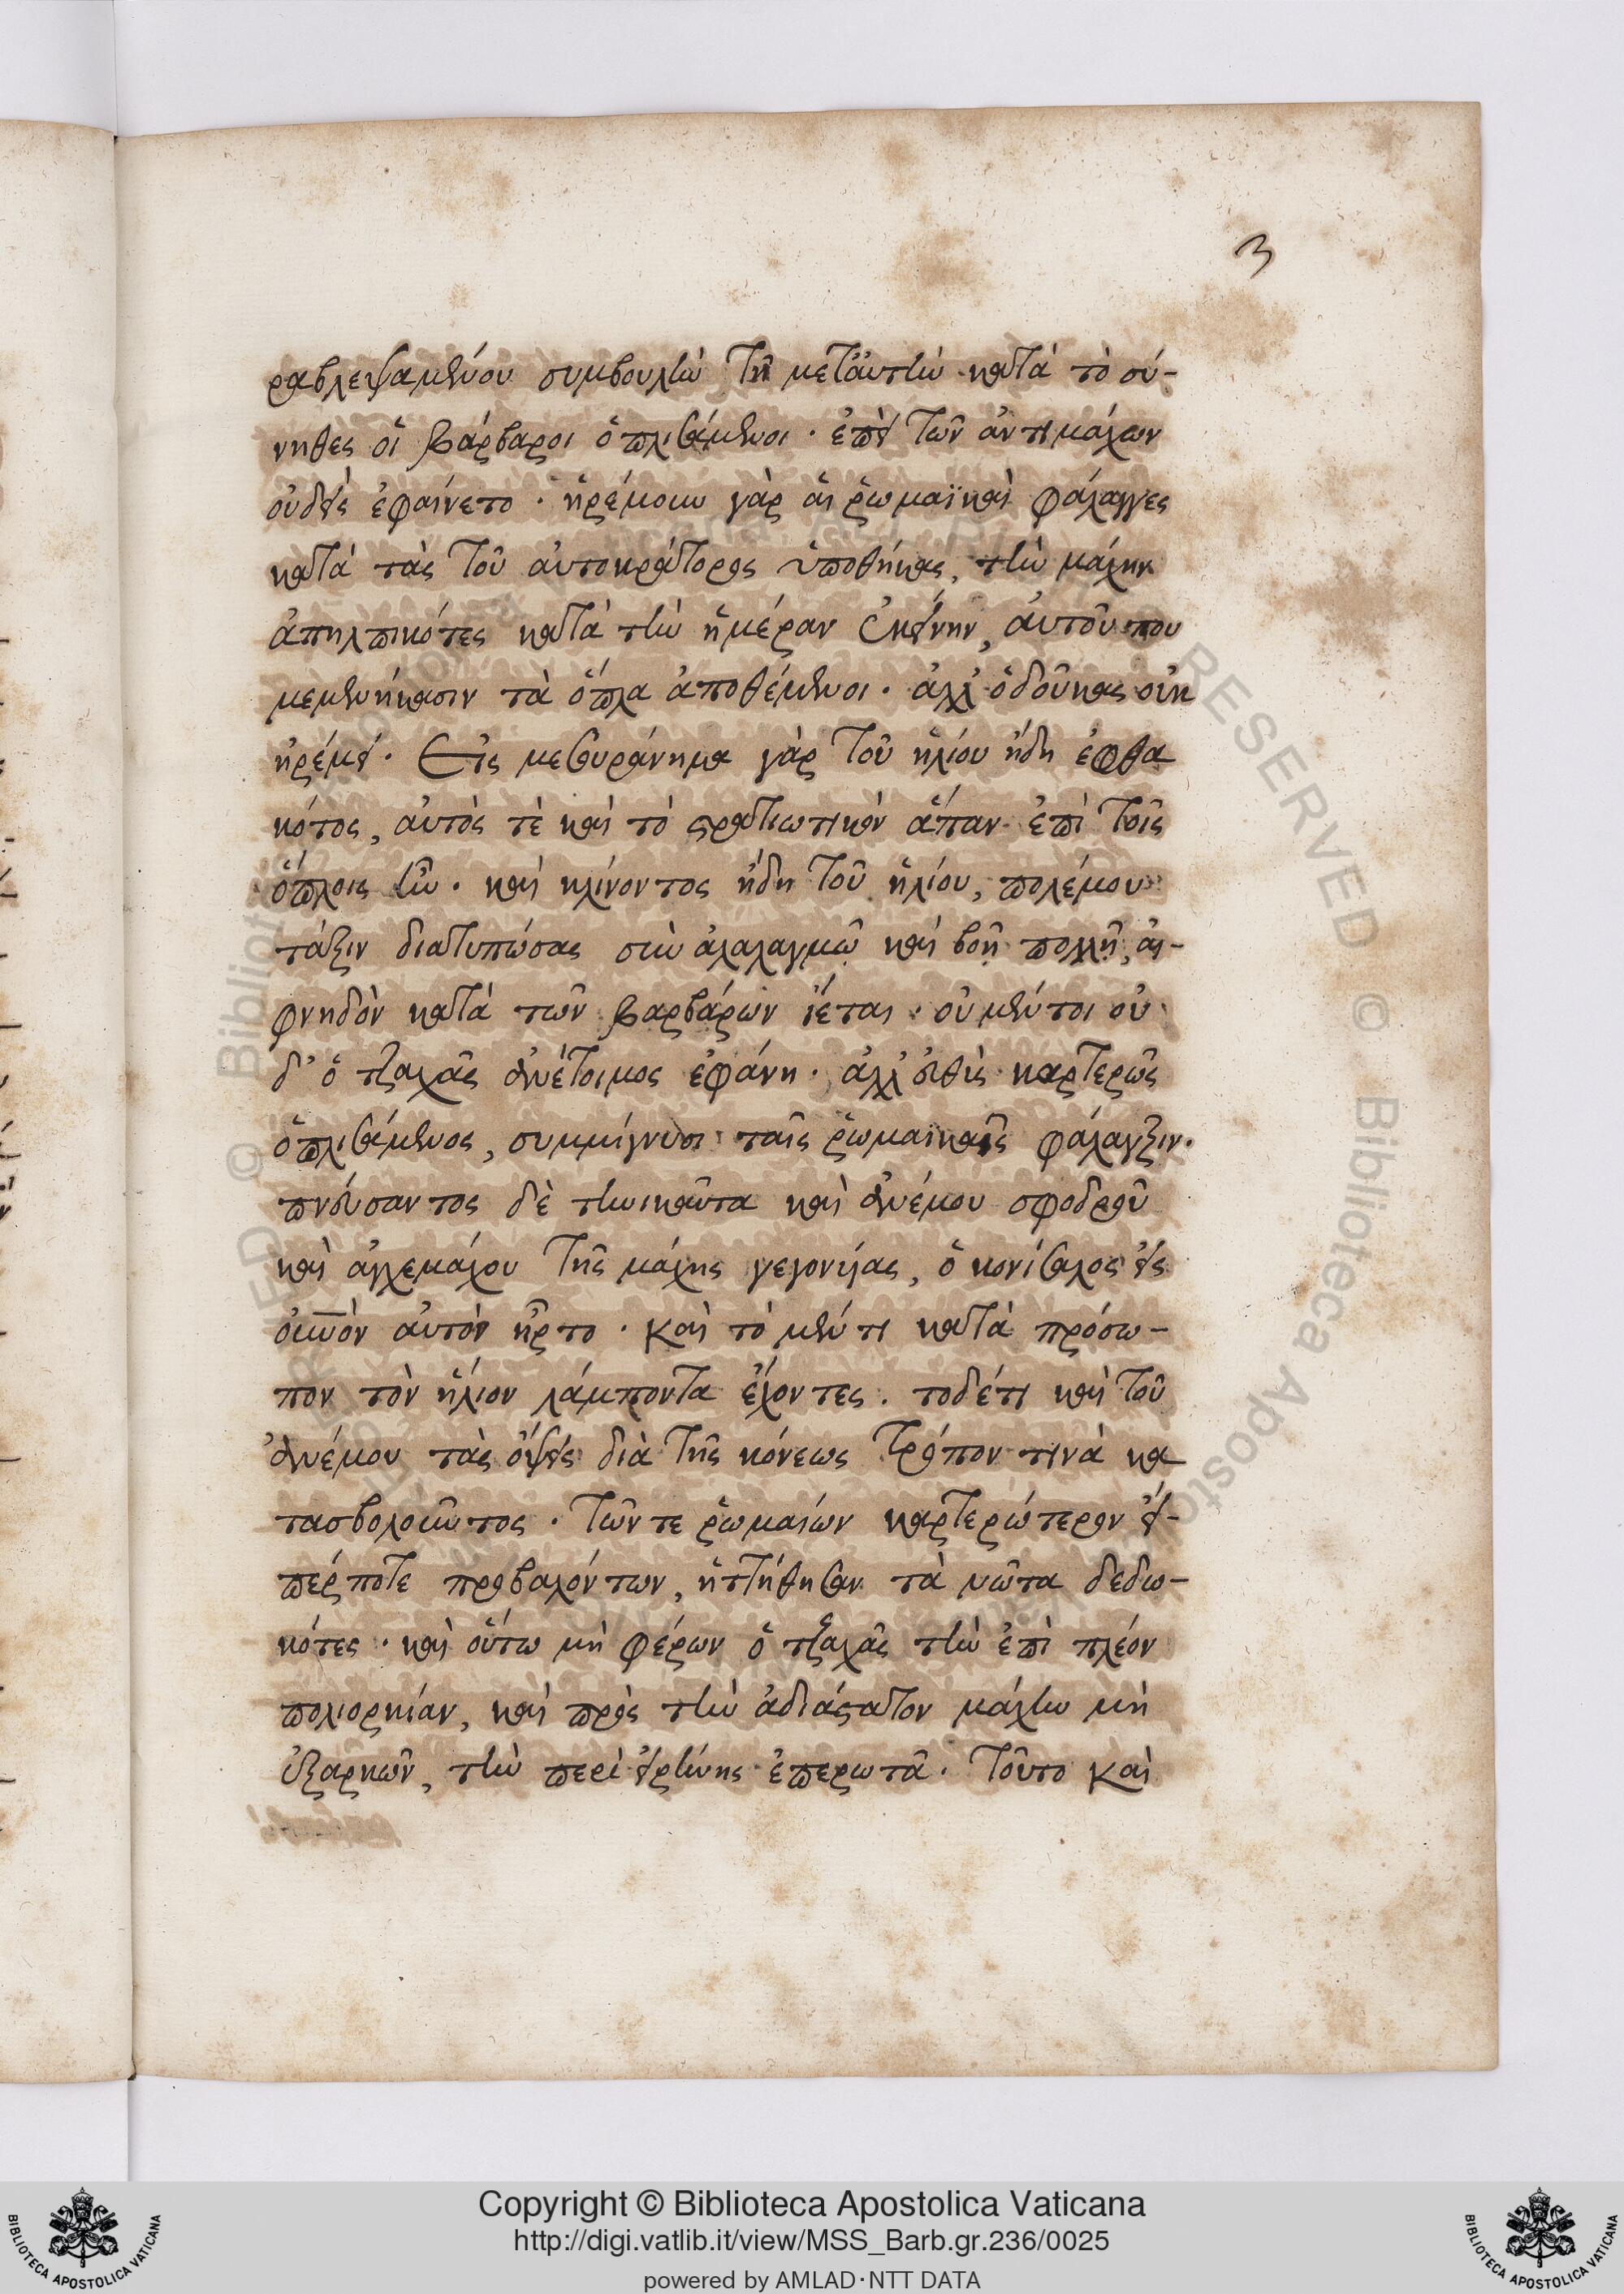 3
ραβλεψαμένου συμβουλὴν τῇ μεταύτὴν κατὰ τὸ σύ-
νηθες οἱ βάρβαροι ὁπλισάμενοι · ἐπεὶ τῶν ἀντιμάχων
οὐδεὶς ἐφαίνετο · ἠρέμουν γὰρ αἱ ῥωμαϊκαὶ φάλαγγες
κατὰ τὰς τοῦ αὐτοκράτορος ὑποθήκας, τὴν μάχην
ἀπηλπικότες κατὰ τὴν ἡμέραν ἐκείνην, αὐτοῦ που
μεμενήκασιν τὰ ὅπλα ἀποθέμενοι · ἀλλ' ὁ δοῦκας οὐκ
ἠρέμει · Εἰς μεσουράνημα γὰρ τοῦ ἡλίου ἤδη ἐφθα
κότος, αὐτὸς τὲ καὶ τὸ στρατιωτικὸν ἅπαν ἐπὶ τοῖς
ὅπλοις ἦν · καὶ κλίνοντος ἤδη τοῦ ἡλίου, πολέμου
τάξιν διατυπώσας σὺν ἀλαλαγμῷ καὶ βοῇ πολλῇ, αἰ-
φνηδὸν κατὰ τῶν βαρβάρων ἵεται · οὐ μέντοι οὐ
δ' ὁ τζαχᾶς ἀνέτοιμος ἐφάνη · ἀλλ' εὐθὺς καρτερῶς
ὁπλισάμενος, συμμίγνυσι ταῖς ῥωμαϊκαῖς φάλαγξιν ·
πνεύσαντος δὲ τηνικαῦτα καὶ ἀνέμου σφοδροῦ
καὶ ἀγχεμάχου τῆς μάχης γεγονυίας, ὁ κονίσαλος εἰς
οὐνὸν αὐτὸν ἦρτο · καὶ τὸ μέν τι κατὰ πρόσω-
πον τὸν ἥλιον λάμποντα ἔχοντες · τοδέτι καὶ τοῦ
ἀνέμου τὰς ὄψεις διὰ τῆς κόνεως τρόπον τινὰ κα
τασβολοῦντος · τῶν τε ῥωμαίων καρτερώτερον εἴ-
πέρ ποτε προβαλόντων, ἡττήθησαν τὰ νῶτα δεδω-
κότες · καὶ οὕτω μὴ φέρων ὁ τζαχᾶς τὴν ἐπὶ πλέον
πολιορκίαν, καὶ πρὸς τὴν ἀδιάστατον μάχην μὴ
ἐξαρκῶν, τὴν περὶ εἰρήνης ἐπερωτᾶ · τοῦτο καὶ
Copyright © Biblioteca Apostolica Vaticana
http://digi.vatlib.it/view/MSS_Barb.gr.236/0025
powered by AMLAD·NTT DATA